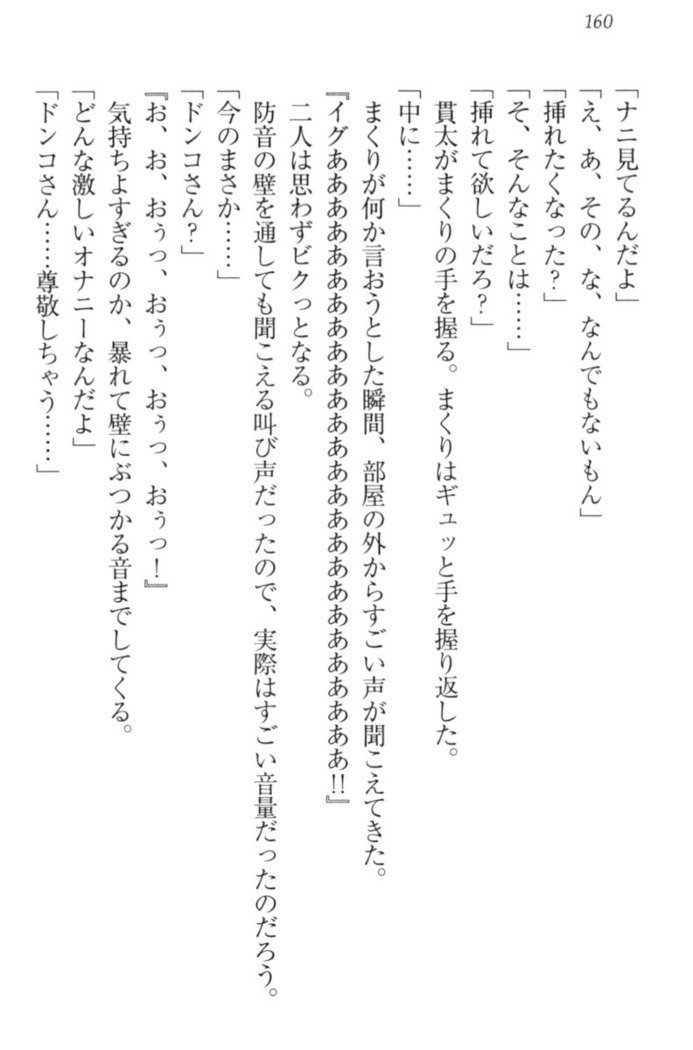 160
「ナニ見てるんだよ」
「え、あ、その、な、なんでもないもん」
「挿れたくなった？」
「そ、そんなことは……」
「挿れて欲しいだろ？」
貫太がまくりの手を握る。まくりはギュッと手を握り返した。
「中に……」
まくりが何か言おうとした瞬間、部屋の外からすごい声が聞こえてきた。
『イグあああああああああああああああああああああああああああ!!』
二人は思わずビクっとなる。
防音の壁を通しても聞こえる叫び声だったので、実際はすごい音量だったのだろう。
「今のまさか……」
「ドンコさん？」
『お、お、おぅっ、おぅっ、おぅっ、おぅっ！』
気持ちよすぎるのか、暴れて壁にぶつかる音までしてくる。
「どんな激しいオナニーなんだよ」
「ドンコさん……尊敬しちゃう……」